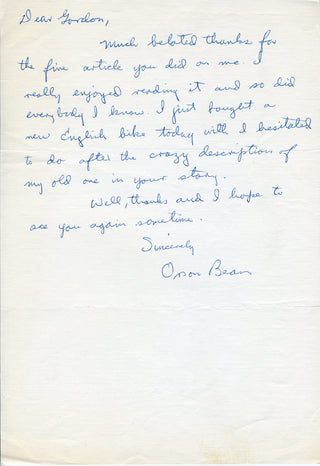 Dear Gordon,
Much belated thanks for
the fine article you did on me. I
really enjoyed reading it and so did
everybody I know. I just bought a
new English bike today with I hesitated
to do after the crazy description of
my old one in your story.
Well, thanks and I hope to
see you again sometime.
Sincerely
Orson Bean